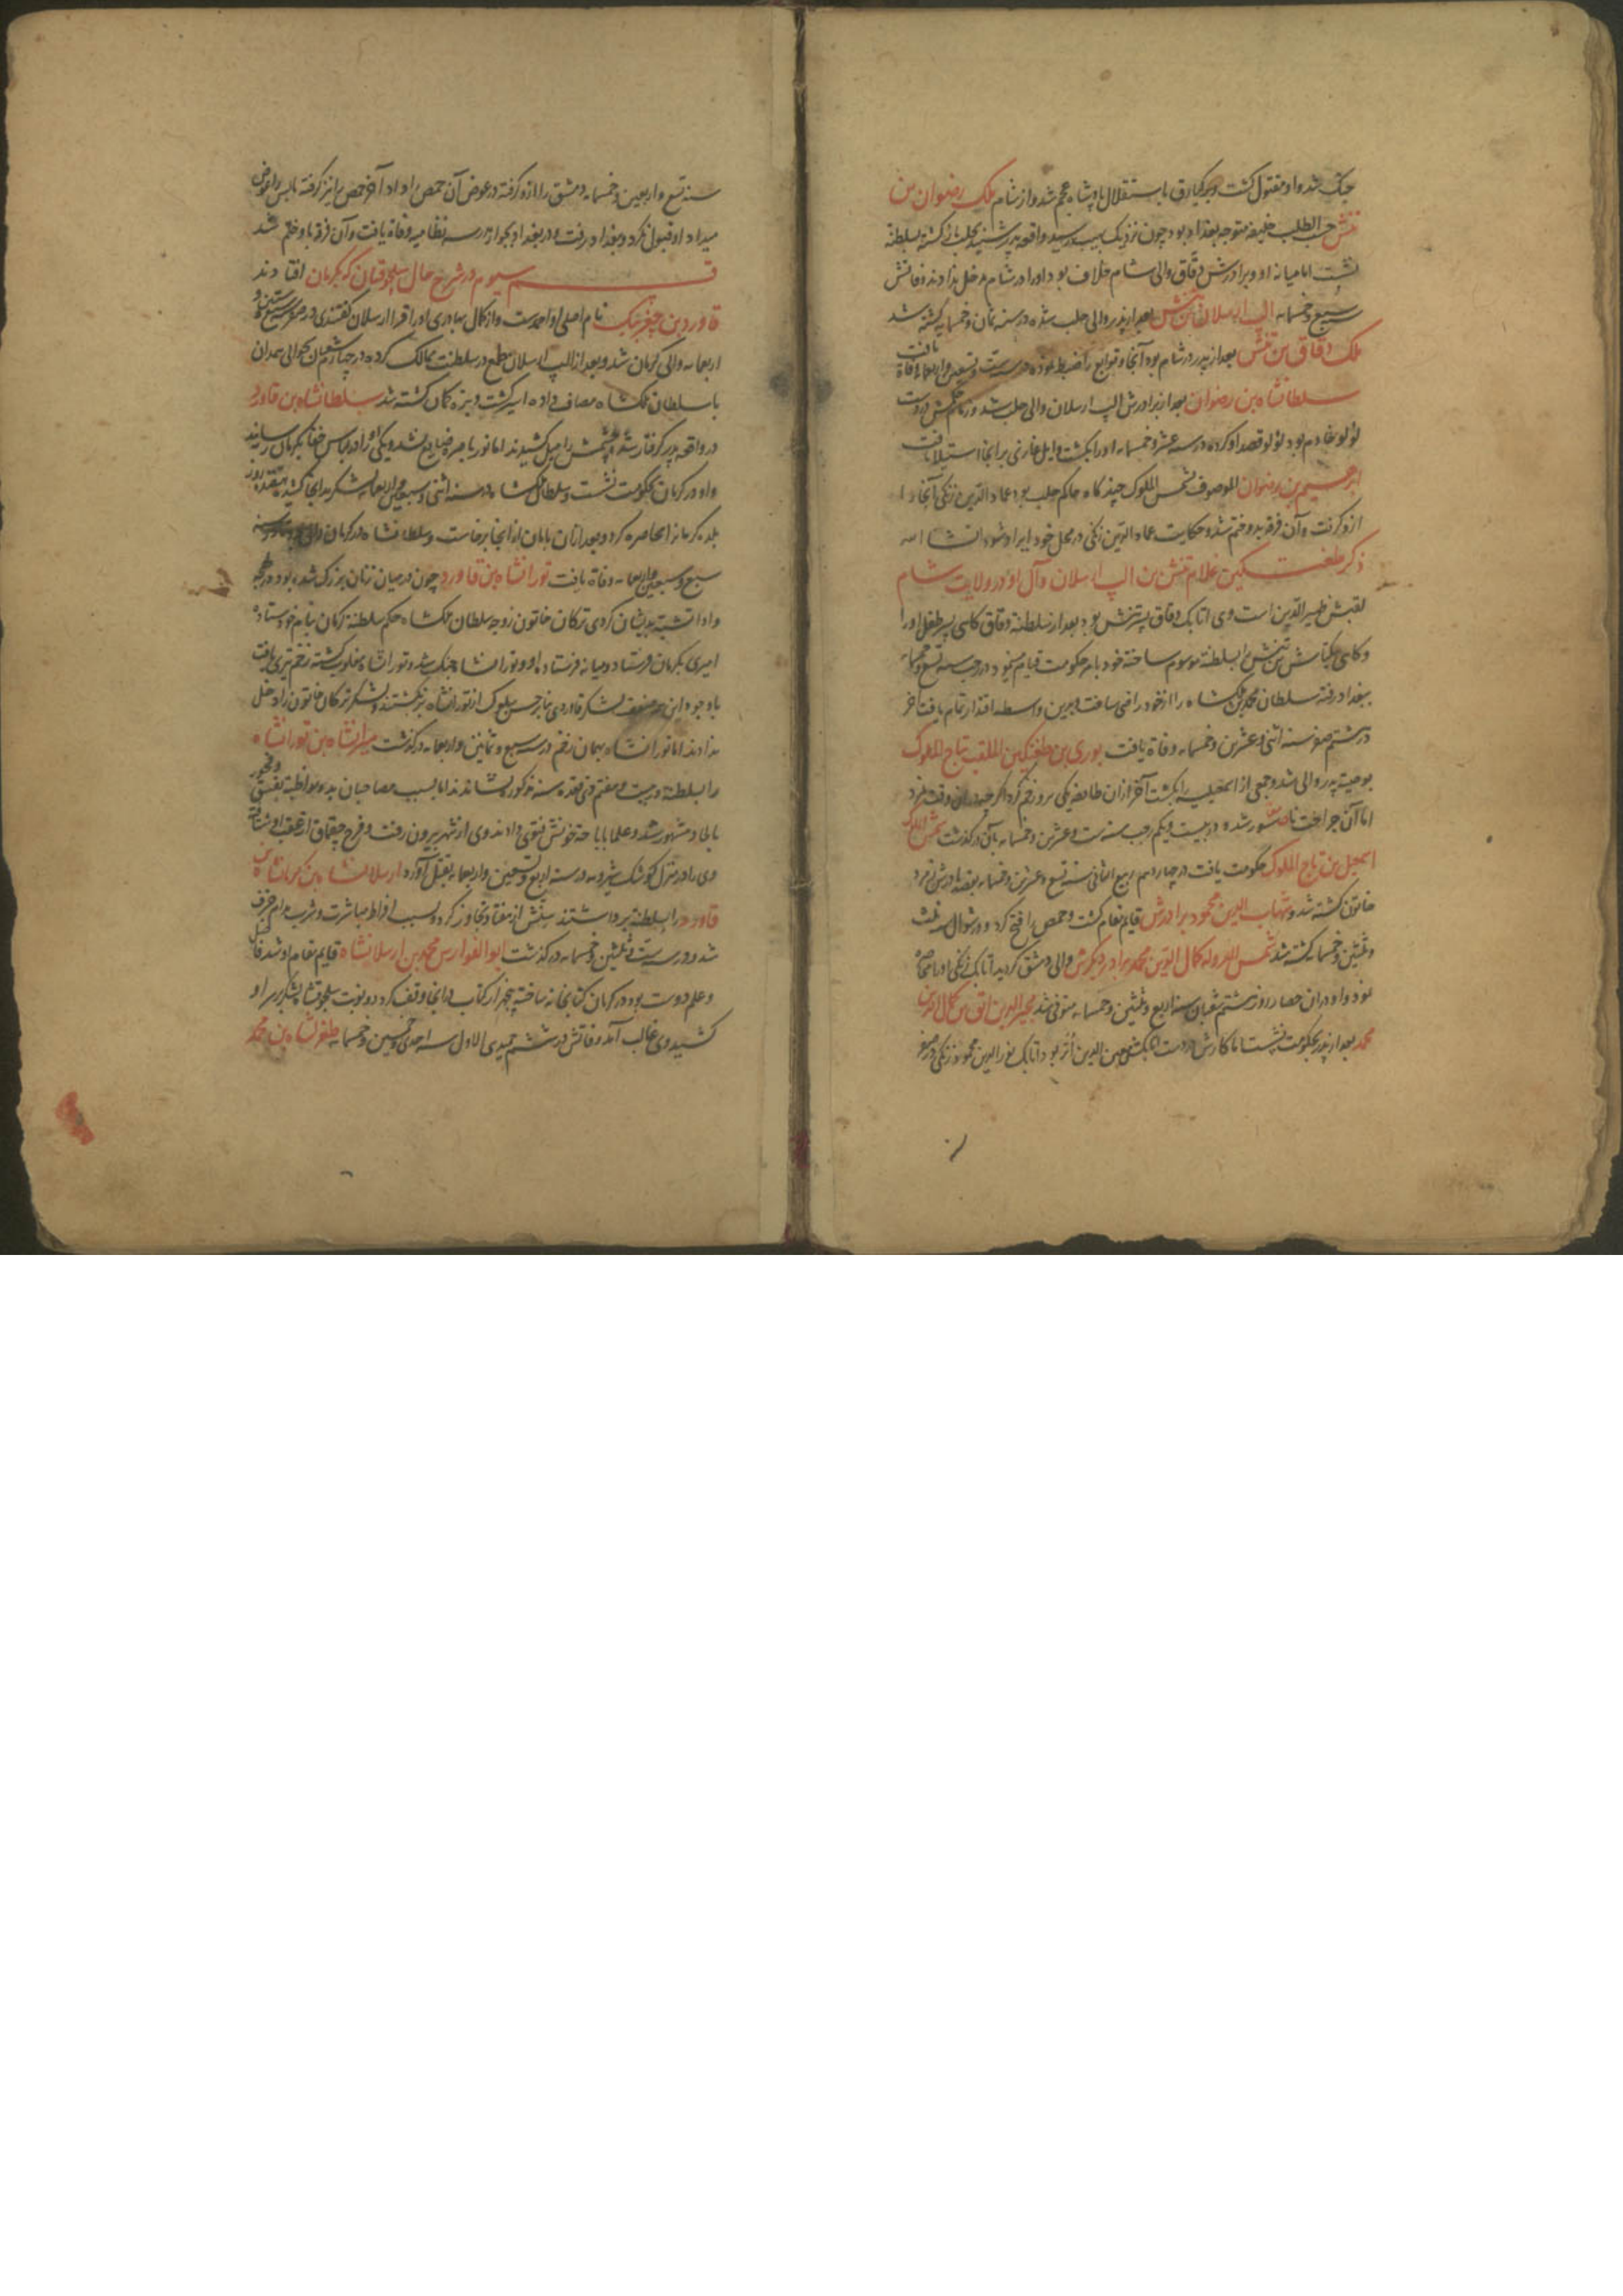 جنک شد و او مقتول کشت و برکیارق باستقلال پادشاه عجم شد و از شام ملک رضوان بن
تتش حسب الطلب خلیفه متوجه بغداد بود چون نزدیک رسید واقعه پدر شنید بحلب بازکشته بسلطنة
نشست اما میانه او و برادرش دقاق والی شام خلاف بود او را در شام مدخل ندادند وفاتش
سبع و خمسمایه الب ارسلان بن تتش بعد از پدر والی حلب شده در سنه ثمان و خمسمایه کشته شد
ملک دقاق بن تتش بعد از پدر در شام بود آنجا و توابع را ضبط نموده در سنه و تسعین و اربعمایه وفاة یافت
سلطانشاه بن رضوان بعد از برادرش الب ارسلان والی حلب شد و زمام حکمش در دست
لؤلو خادم بود لؤلو قصد او کرده در سنه عشر و خمسمایه او را بکشت و ایل غازی بر آنجا استیلا یافت
ابرهیم بن رضوان الموصوف شمس الملوک چندکاه حاکم حلب بود عماد الدین زنکی آنجا را
ازو کرفت و آن فرقه بدو ختم شد و حکایت عماد الدین زنکی در محل خود ایراد شود انشا الله
ذکر طغتکین غلام تتش بن الب ارسلان و آل او در ولایت شام
لقبش ظهیر الدین است وی اتابک دقاق پسر تتش بود بعد از سلطنة دقاق کاهی پسر طفل او را
و کاهی بکتاش بن تتش را بسلطنة موسوم ساخته خود بامر حکومت قیام مینمود در سنه تسع و خمسمایه
ببغداد رفته سلطان محمد بن ملکشاه را از خود راضی ساخت بدین واسطه اقتدار تمام یافت آخر
در هشتم صفر سنه اثنی و عشرین و خمسمایه وفاة یافت بوری بن طغتکین الملقب بتاج الملوک
بوصیة پدر والی شد و جمعی از اسمعیلیه را بکشت آخر از آن طایفه یکی برو زخم کرد اکر چه در آن وقت نمرد
اما آن جراحت ناسور شده در بیست و یکم رجب سنه ست و عشرین و خمسمایه بآن درکذشت شمس الملوک
اسمعیل بن تاج الملوک حکومت یافت در چهاردهم ربیع الثانی سنه تسع و عشرین و خمسمایه بقصد مادرش زمرد
خاتون کشته شد و شهاب الدین محمود برادرش قایم مقام کشت و حمص را فتح کرد و در شوال سنه ثلث
و ثلثین و خمسمایه کشته شد شمس الدوله کمال الدین محمد برادر دیکرش والی دمشق کردید اتابک زنکی او را محاصره
نمود و او در آن حصار روز هشتم شعبان سنه اربع و ثلثین و خمسمایه متوفی شد مجیر الدین ابق بن کمال الدین
محمد بعد از پدر بحکومت نشست اما کارش در دست معین الدین انر بود اتابک نور الدین محمود زنکی در صفر
سنه تسع و اربعین و خمسمایه دمشق را ازو کرفته در عوض آن حمص را داد و آخر حمص را نیز کرفته بالس را عوض
میداد او قبول نکرد و ببغداد رفت و در بغداد بجوار مدرسه نظامیه وفاة یافت و آن فرقه باو ختم شد
قسم سیوم در شرح حال سلجوقیان که بکرمان افتادند
قاورد بن جغربیک نام اصلی او احمدست و از کمال بهادری او را قرا ارسلان کفتندی در سنه و
اربعمایه والی کرمان شد و بعد از الب ارسلان طمع در سلطنت ممالک کرده در چهارم شعبان بحوالی همدان
با سلطان ملکشاه مصاف داده اسیر کشت و بزه کمان کشته شد سلطانشاه بن قاورد
در واقعه پدر کرفتار شد و چشمش را میل کشیدند اما نور باصره ضایع نشد و یکی او را در لباس خفا بکرمان رسانید
و او در کرمان بحکومت نشست و سلطان ملکشاه در سنه اثنی و سبعین و اربعمایه لشکر بدانجا کشیده هفده روز
بلده کرمانرا محاصره کرد و بعد از آن بامان از آنجا برخاست و سلطانشاه در کرمان والی بود در سنه
سبع و سبعین و اربعمایه وفاة یافت تورانشاه بن قاورد چون در میان زنان بزرک شده بود در لهجه
و ادا تشبه بدیشان کردی ترکان خاتون زوجه سلطان ملکشاه حکم سلطنة کرمان بنام خود ستاده
امیری بکرمان فرستاد و میانه فرستاده او و تورانشاه جنک شد و تورانشاه مغلوب کشته زخم تیری یافت
باوجود این ضعف لشکر قاوردی بنابر حسن سلوک از تورانشاه برنکشتند و لشکر ترکان خاتون را دخل
ندادند اما تورانشاه بهمان زخم در سنه سبع و ثمانین و اربعمایه درکذشت میرانشاه بن تورانشاه
را بسلطنة در بیست و هفتم ذی قعده سنه مذکور نشاندند اما بسبب مصاحبان بد و مواظبة بفسق و فجور
بالحاد مشهور شد و علما باباحت خونش فتوی دادند وی از شهر بیرون رفت و فرخ قفجاق از عقب او شتافته
وی را در منزل کوشک شیرویه در سنه اربع و تسعین و اربعمایه بقتل آورد ارسلانشاه بن کرمانشاه بن
قاورد را بسلطنة برداشتند سنش از هفتاد تجاوز کرد و بسبب افراط مباشرت و شرب مدام خرف
شد و در سنه ست و ثلثین و خمسمایه درکذشت ابو الفوارس محمد بن ارسلانشاه قایم مقام او شد فاضل
و علم دوست بود در کرمان کتابخانه ساخته پنجهزار کتاب در آنجا وقف کرد دو نوبت سلجوقشاه لشکر بر سر او
کشید وی غالب آمد وفاتش در ششم جمیدی الاول سنه احدی و خمسین و خمسمایه طغرلشاه بن محمد